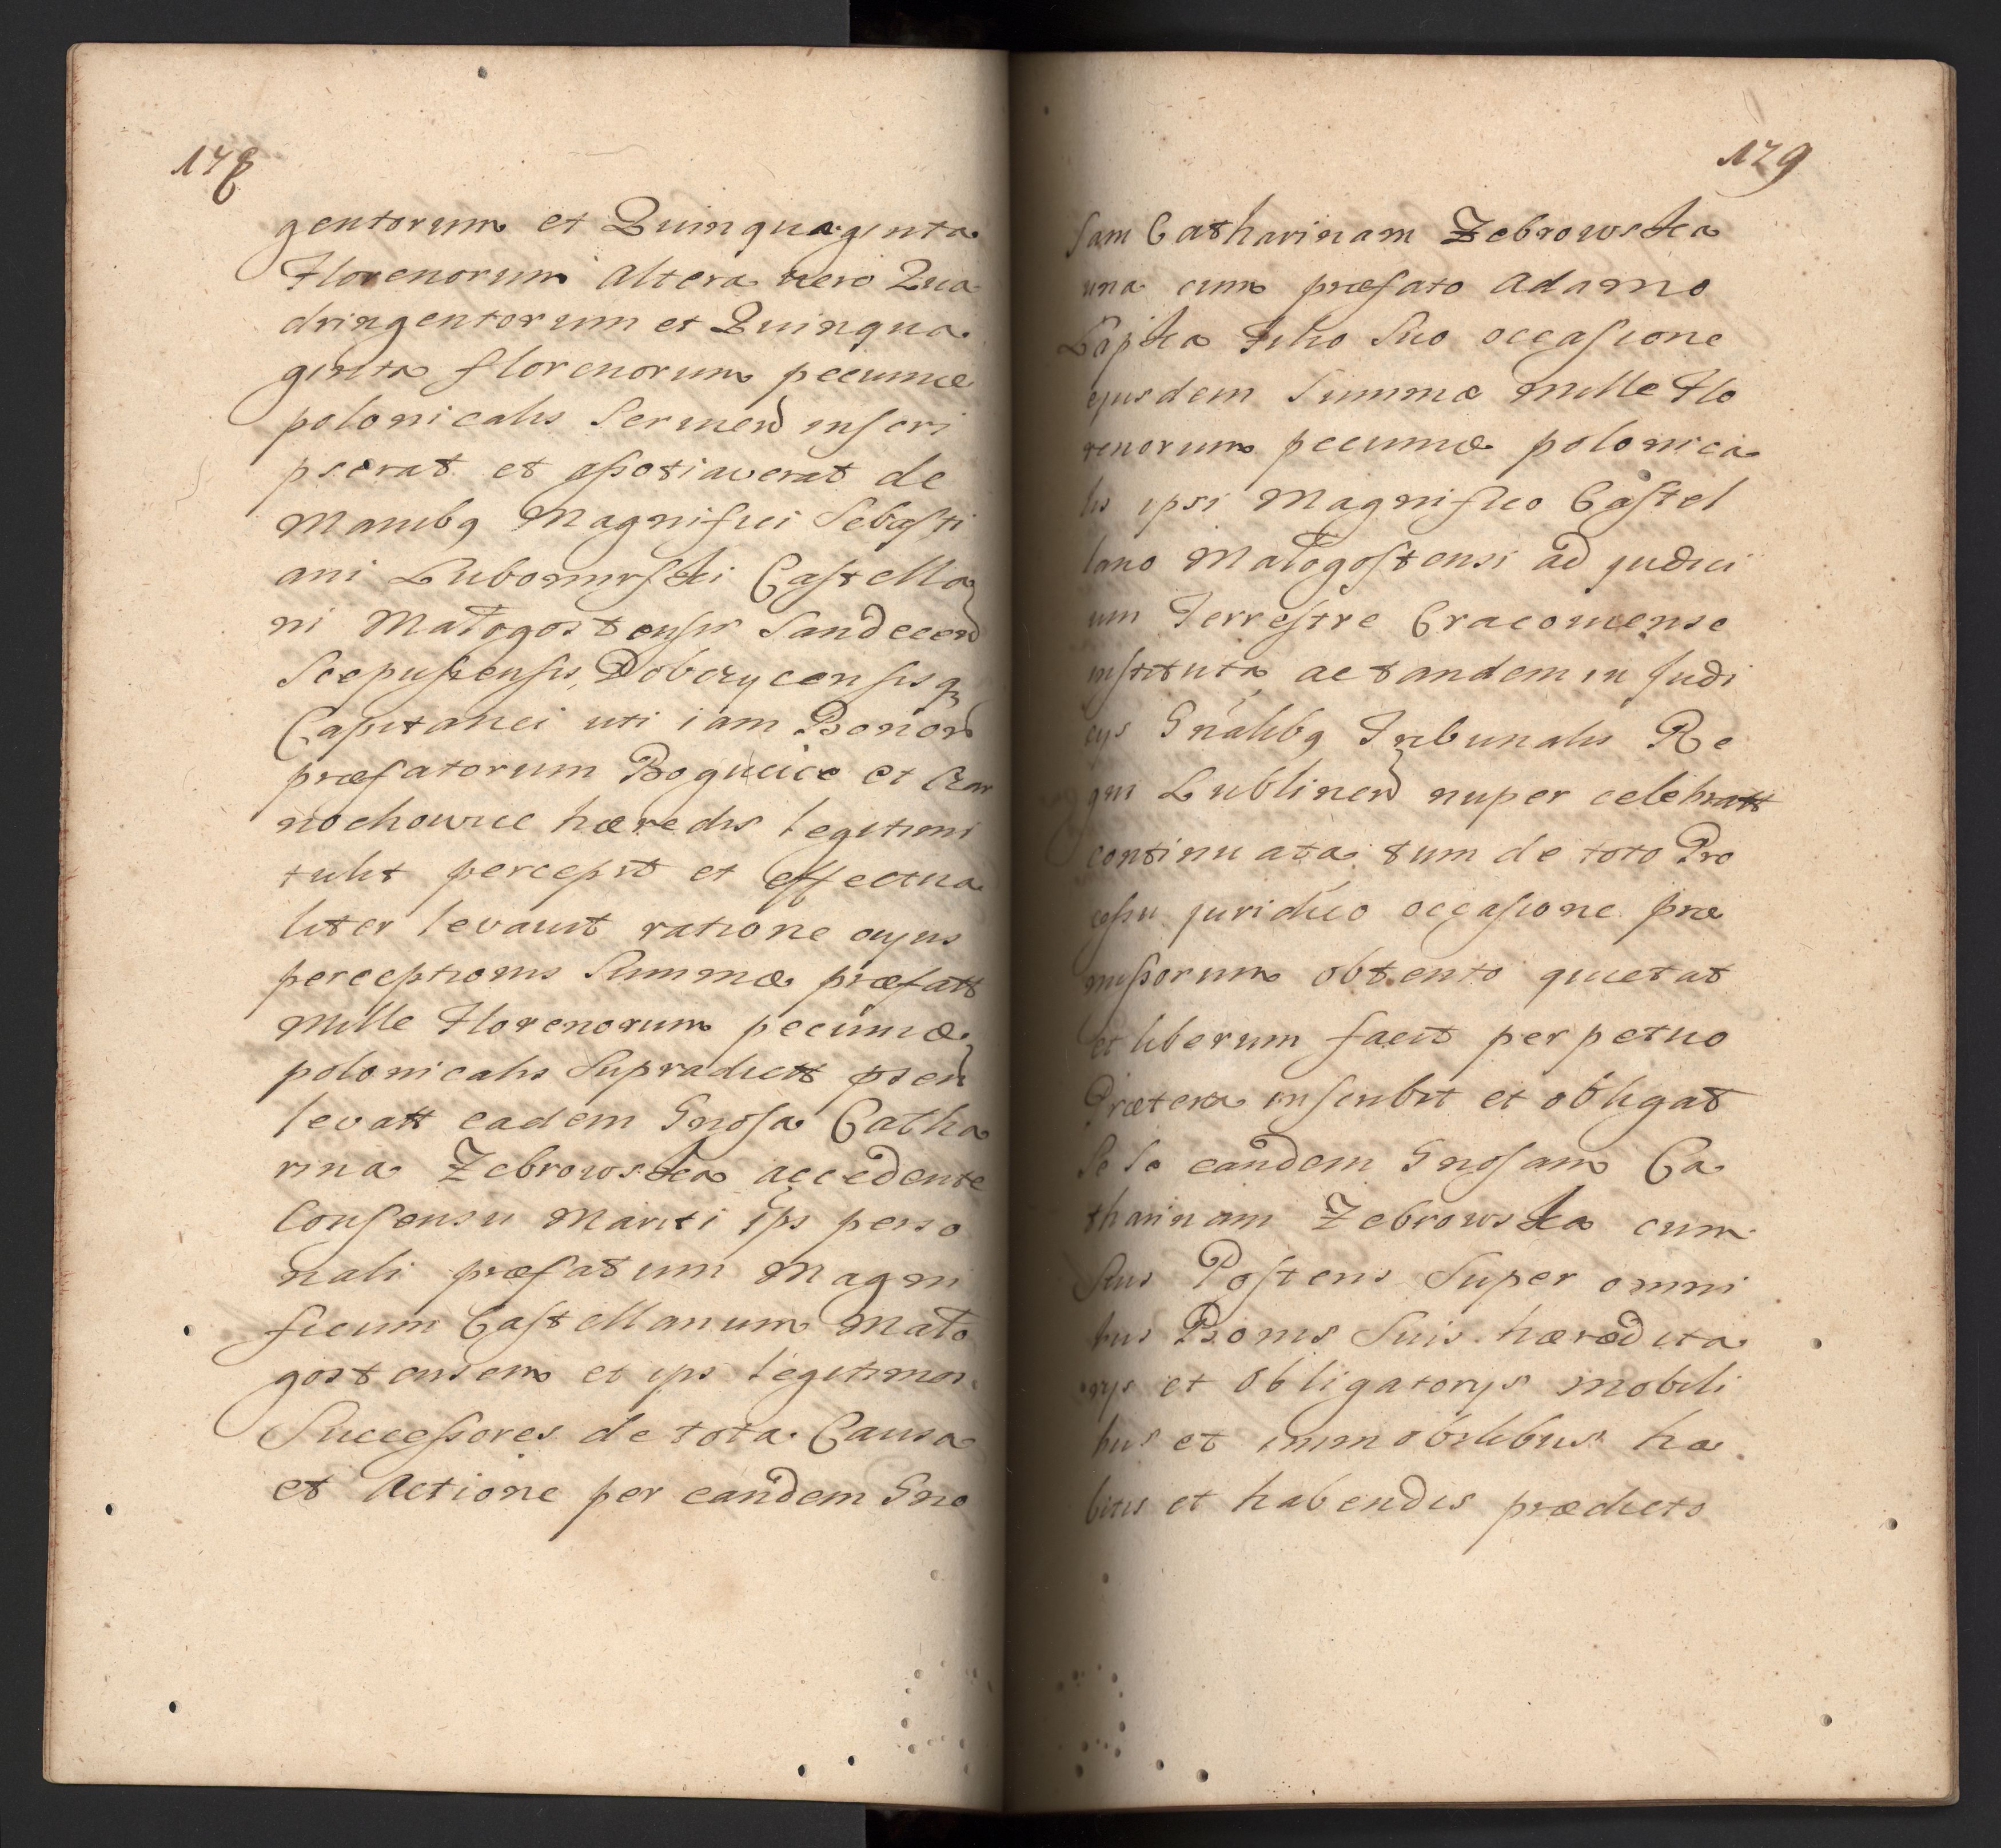 178
gentorum et Quinquaginta
Florenorum altera vero Qua
dringentorum et Quinqua
ginta florenorum pecuniæ
polonicalis Sermen inscri
pserat et assotiaverat de
Manibq Magnifici Sebasti
ani Lubomirski Castella
ni Małogostensis Sandecen
Scepusiensis, Dobczycensisq
Capitanei uti iam Bonor
præfatorum Bogucice et Czar
nochowice hæredis legitimi
tulit percepit et effectua
liter levavit ratione cujus
perceptionis Summæ præfatt
Mille Florenorum pecuniæ
polonicalis Supradictt psen
levatt eadem Gnosa Catha
rina Zebrowska accedente
Consensu Mariti ips perso
nali præfatum Magni
ficum Castellanum Mało
gostensem et ips legitimos
Successores de tota Causa
et Actione per eandem Gno
179
sam Catharinam Zebrowska
una cum præfato Adamo
Łapka Filio Suo occasione
ejusdem Summæ Mille Flo
renorum pecuniæ polonica
lis ipsi Magnifico Castel
lano Małogostensi ad judici
um Terrestre Cracoviense
instituta ac tandem in Judi
cys Gnalibq Tribunalis Re
gni Lublinen nuper celebratt
continuata tum de toto Pro
cessu juridico occasione præ
missorum obtento quietat
et liberum facit perpetuo
Præterea inscribit et obligat
Se Se eandem Gnosam Ca
tharinam Zebrowska cum
Suis Posteris Super omni
bus Bonis Suis hæredita
rys et Obligatorys mobili
bus et immobilibus ha
bitis et habendis prædicto